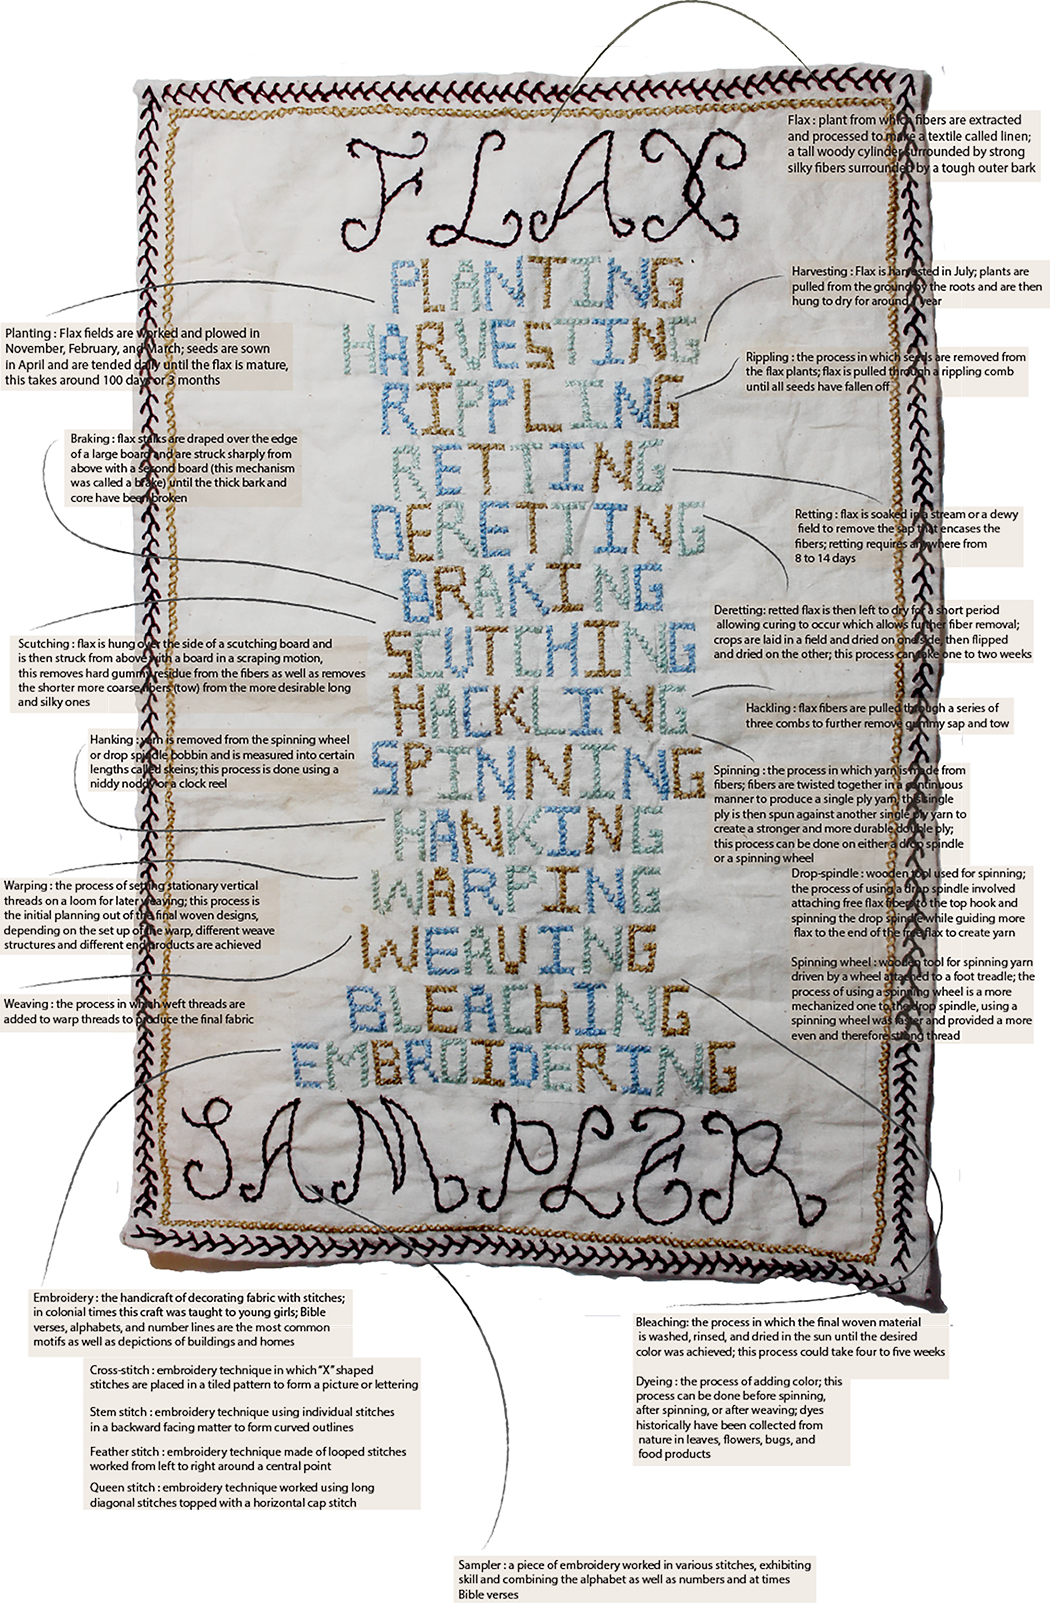 FLAX
PLANTING
HARVESTING
RIPPLING
RETTING
DERETTING
BRAKING
SCUTCHING
HACKLING
SPINNING
HANKING
WARPING
WEAVING
BLEACHING
EMBROIDERING
SAMPLER
Flax : plant from which fibers are extracted
and processed to make a textile called linen;
a tall woody cylinder surrounded by strong
silky fibers surrounded by a tough outer bark
Harvesting : Flax is harvested in July; plants are
pulled from the ground by the roots and are then
hung to dry for around 1 year
Planting : Flax fields are worked and plowed in
November, February, and March; seeds are sown
in April and are tended daily until the flax is mature,
this takes around 100 days or 3 months
Rippling : the process in which seeds are removed from
the flax plants; flax is pulled through a rippling comb
until all seeds have fallen off
Braking : flax stalks are draped over the edge
of a large board and are struck sharply from
above with a second board (this mechanism
was called a brake) until the thick bark and
core have been broken
Retting : flax is soaked in a stream or a dewy
field to remove the sap that encases the
fibers; retting requires anywhere from
8 to 14 days
Deretting: retted flax is then left to dry for a short period
allowing curing to occur which allows further fiber removal;
crops are laid in a field and dried on one side, then flipped
and dried on the other; this process can take one to two weeks
Scutching : flax is hung over the side of a scutching board and
is then struck from above with a board in a scraping motion,
this removes hard gummy residue from the fibers as well as removes
the shorter more coarse fibers (tow) from the more desirable long
and silky ones
Hackling : flax fibers are pulled through a series of
three combs to further remove gummy sap and tow
Hanking : yarn is removed from the spinning wheel
or drop spindle bobbin and is measured into certain
lengths called skeins; this process is done using a
niddy noddy or a clock reel
Spinning : the process in which yarn is made from
fibers; fibers are twisted together in a continuous
manner to produce a single ply yarn, this single
ply is then spun against another single ply yarn to
create a stronger and more durable double ply;
this process can be done on either a drop spindle
or a spinning wheel
Drop-spindle : wooden tool used for spinning;
the process of using a drop spindle involved
attaching free flax fibers to the top hook and
spinning the drop spindle while guiding more
flax to the end of the free flax to create yarn
Warping : the process of setting stationary vertical
threads on a loom for later weaving; this process is
the initial planning out of the final woven designs,
depending on the set up of the warp, different weave
structures and different end products are achieved
Spinning wheel : wooden tool for spinning yarn
driven by a wheel attached to a foot treadle; the
process of using a spinning wheel is a more
mechanized one to the drop spindle, using a
spinning wheel was faster and provided a more
even and therefore strong thread
Weaving : the process in which weft threads are
added to warp threads to produce the final fabric
Embroidery : the handicraft of decorating fabric with stitches;
in colonial times this craft was taught to young girls; Bible
verses, alphabets, and number lines are the most common
motifs as well as depictions of buildings and homes
Cross-stitch : embroidery technique in which “X” shaped
stitches are placed in a tiled pattern to form a picture or lettering
Stem stitch : embroidery technique using individual stitches
in a backward facing matter to form curved outlines
Feather stitch : embroidery technique made of looped stitches
worked from left to right around a central point
Queen stitch : embroidery technique worked using long
diagonal stitches topped with a horizontal cap stitch
Bleaching: the process in which the final woven material
is washed, rinsed, and dried in the sun until the desired
color was achieved; this process could take four to five weeks
Dyeing : the process of adding color; this
process can be done before spinning,
after spinning, or after weaving; dyes
historically have been collected from
nature in leaves, flowers, bugs, and
food products
Sampler : a piece of embroidery worked in various stitches, exhibiting
skill and combining the alphabet as well as numbers and at times
Bible verses